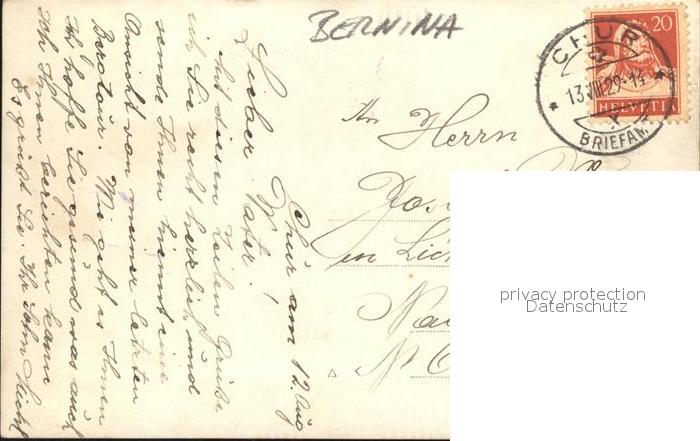 BERNINA
20
HELVETIA
CHUR
13.VIII.29-14
BRIEFAN.
Chur am 12. Aug
Lieber Vater!
Mit diesen Zeilen Grüße
ich Sie recht herzlich und
sende Ihnen hiemit eine
Ansicht von meiner letzten
Bergtour. Wie geht es Ihnen
Ich hoffe Sie gesund was auch
Ich Ihnen berichten kann
Es grüßt Sie. Ihr Sohn
An Herrn
in
N
privacy protection
Datenschutz